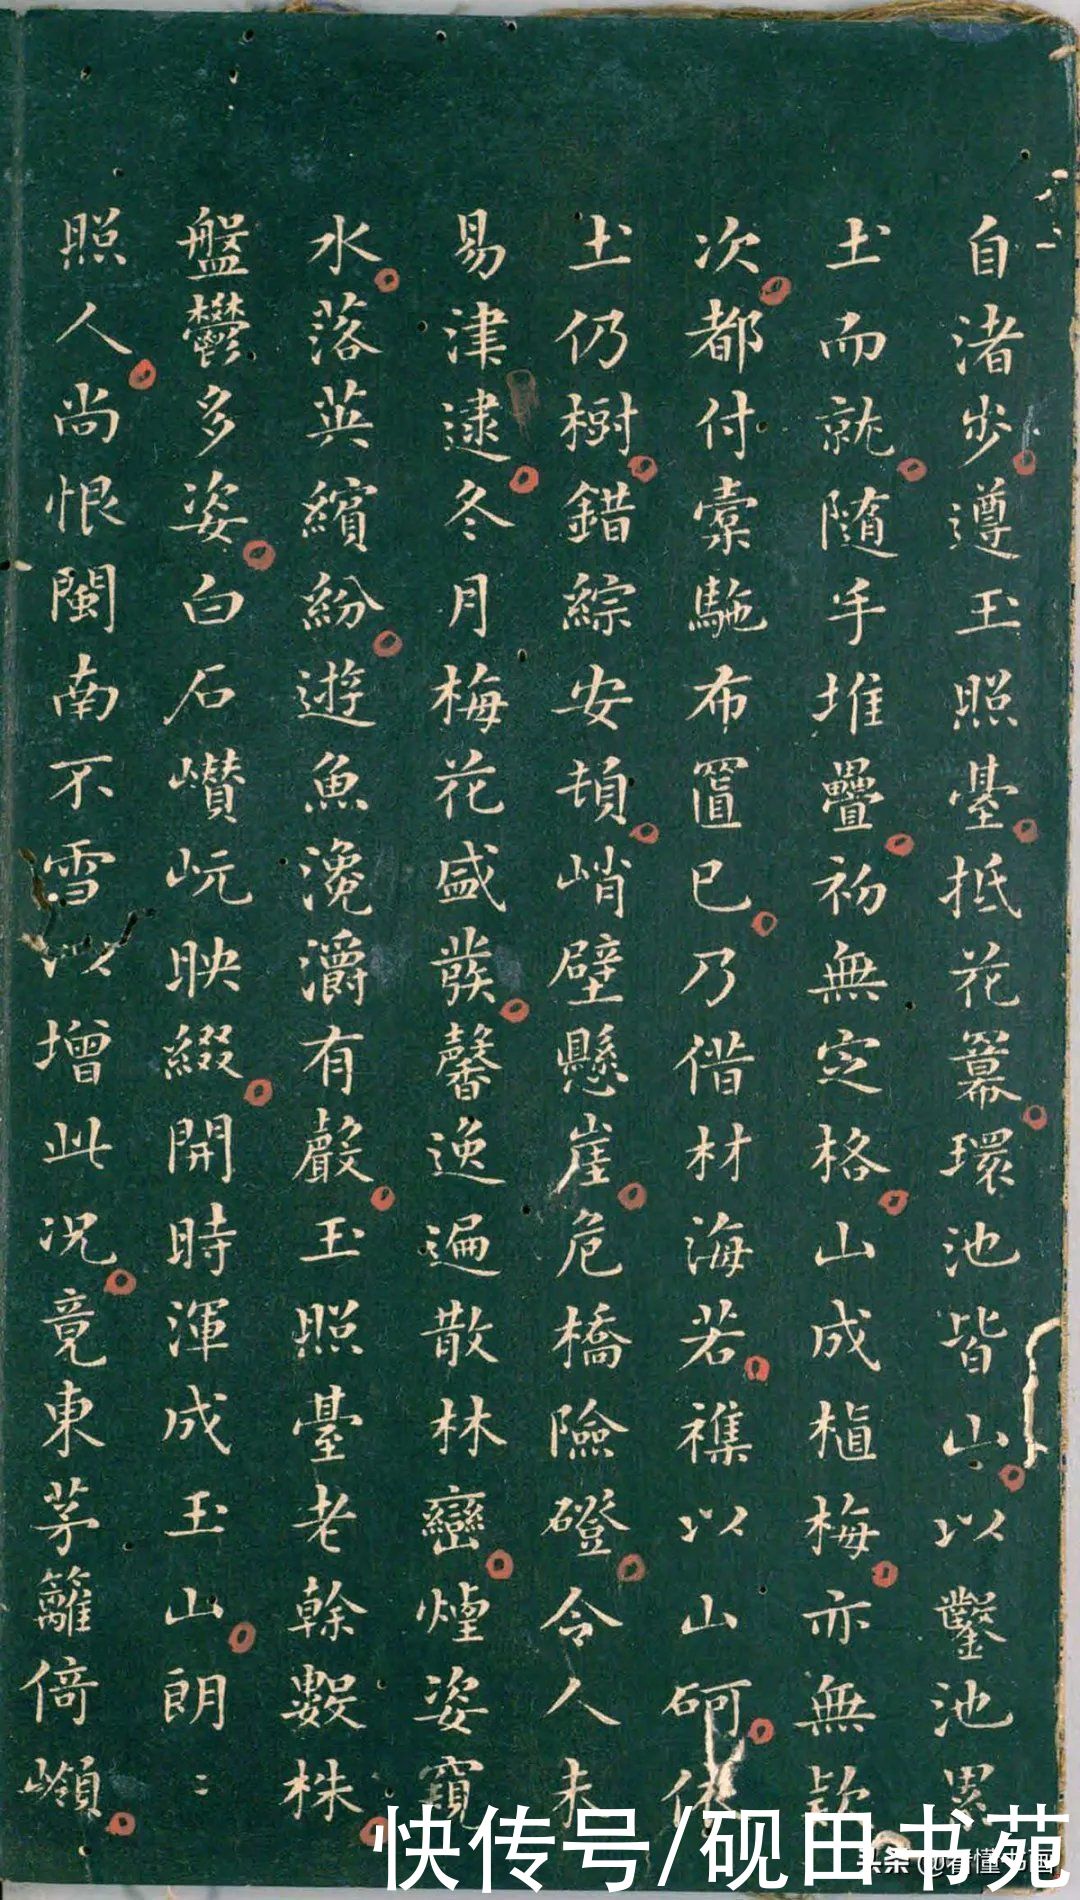 自渚步遵玉照臺抵花冪環池皆山以鑿池累
土而就隨手堆疊初無定格山成植梅亦無款
次都付橐駞布置已乃借材海若襍以山砢
土仍樹錯綜安頓峭壁懸崖危橋險磴令人未
易津逮冬月梅花盛發馨逸遍散林巒煙姿窺
水落英繽紛遊魚瀺灂有聲玉照臺老榦數株
盤鬱多姿白石巑岏映綴開時渾成玉山朗〻
照人尚恨閩南不雪以增此況竟東茅籬倚嶺
快传号/砚田书苑
头条@看懂书画